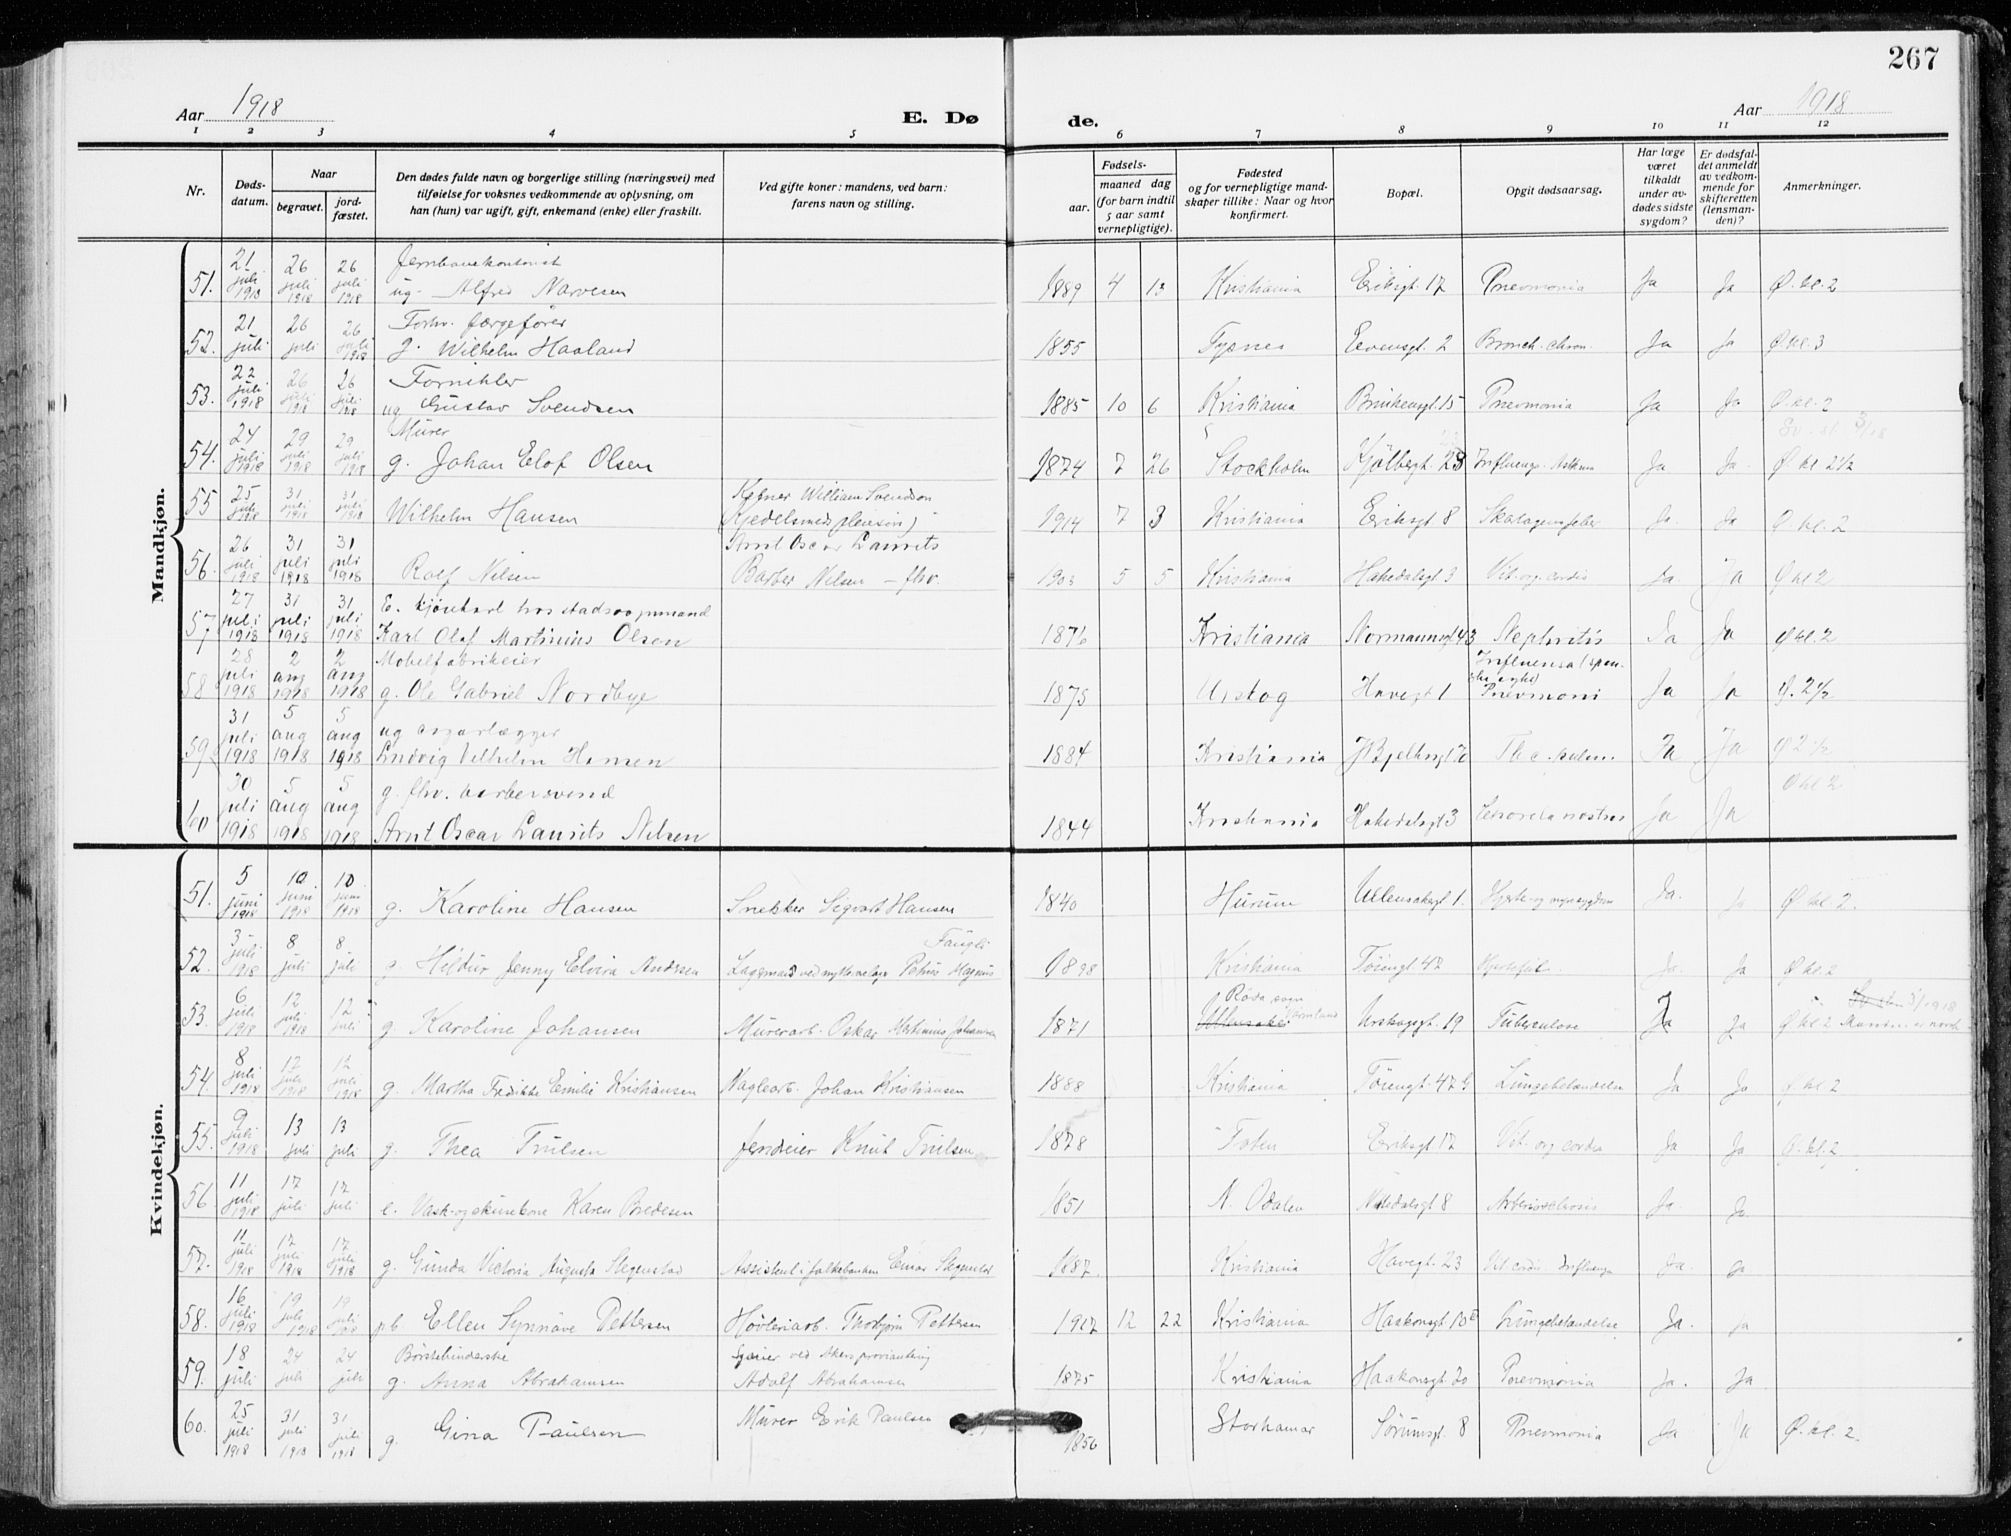 267
Aar 1918
E. Døde.
Aar 1918
1 2 3 4 5 6 7 8 9 10 11 12
Nr.
Dødsdatum.
Naar
begravet.
jordfæstet.
Den dødes fulde navn og borgerlige stilling (næringsvei) med
tilføielse for voksnes vedkommende av oplysning, om
han (hun) var ugift, gift, enkemand (enke) eller fraskilt.
Ved gifte koner: mandens, ved barn:
farens navn og stilling.
Fødsels-
aar.
maaned dag
(for barn indtil
5 aar samt
vernepligtige).
Fødested
og for vernepligtige mand-
skaper tillike: Naar og hvor
konfirmert.
Bopæl.
Opgit dødsaarsag.
Har læge
været
tilkaldt
under av-
dødes sidste
sygdom?
Er dødsfal-
det anmeldt
av vedkom-
mende for
skifteretten
(lensman-
den)?
Anmerkninger.
Mandkjøn.
51. 21 juli 1918 26 juli 1918 26 juli 1918 Jernbanekontorist
ug. Alfred Narvesen 1889 4 13 Kristiania Eriksgt. 17 Pnevmonia Ja Ja Ø. kl. 2
52. 21 juli 26 juli 26 juli 1918 Forhv. færgefører
g. Wilhelm Haaland 1855 Tysnes Eevensgt. 2 Bronch. chron. Ja Ja Ø kl. 3
53. 22 juli 1918 26 juli 1918 26 juli 1918 Fornikler
ug Gustav Svendsen 1885 10 6 Kristiania Brinkensgt. 15 Pnevmonia Ja Ja Ø. kl. 2
54. 24 juli 1918 29 juli 1918 29 juli 1918 Murer
g. Johan Elof Olsen 1874 7 26 Stockholm Kjølbergt. 23 Influensa. Asthma Ja Ja. Ø. kl 2½
55 25 juli 1918 31 juli 1918 31 juli 1918 Wilhelm Hansen Kelner William Svendson
Kjedelsmed 1914 7 3 Kristiania Eriksgt 8 Skarlagensfeber Ja. Ja Ø kl. 2
56. 26 juli 1918 31 juli 1918 31 juli 1918 Rolf Nilsen Arnt Oscar Laurits
Barber Nilsen – fhv. 1903 5 5 Kristiania Hakedalsgt 3 Vit. org. cordis Ja Ja Ø kl 2
57 27 juli 1918 31 juli 1918 31 juli 1918 E. kjørekarl hos stadsoopmand
Karl Olaf Martinius Olsen 1876 Kristiania Normannsgt 43 Nephritis Ja Ja Ø kl. 2
58 28 juli 1918 2 aug 1918 2 aug 1918 Møbelfabrikeier
g. Ole Gabriel Nordbye 1875 Urskog Havegt 1 Influensa (spanske syke)
Pnevmoni Ja Ja Ø. 2½
59 31 juli 1918 5 aug 1918 5 aug 1918 ug
Ludvig Vilhelm Hansen 1884 Kristiania Tbc. pulm. Ja Ja Ø 2½
60 30 juli 1918 5 aug 1918 5 aug 1918 g. fhv. barbersvend
Arnt Oscar Laurits Nilsen 1844 Kristiania Hakedalsgt 3 Cholera nostras Ja Ja Ø kl 2
Kvindekjøn.
51. 5 juni 1918 10 juni 1918 10 juni 1918 g. Karoline Hansen Snekker Sigvart Hansen 1840 Hurum Ullensakergt 1. Hjerte- og nyresygdom Ja. Ja Ø kl. 2.
52. 3 juli 1918 8 juli 8 juli g. Hildur Jenny Elvira Andrsen Petrus Magnus 1898 Kristiania Tøiengt. 47 Hjertefeil Ja Ja Ø kl. 2
53. 6 juli 1918 12 juli 1918 12 juli g. Karoline Johansen Murerarb. Oskar Martinius Johansen 1871 Ullensaker Røda sogn Värmland Urskogsgt. 19 Tuberculose Ja Ja Ø kl 2
54. 8 juli 1918 12 juli 1918 12 juli 1918 g. Martha Fredrikke Emilie Kristiansen Naglearb. Johan Kristiansen 1888 Kristiania Tøiengt. 47 b Lungebetændelse Ja Ja Ø kl 2
55. 9 juli 1918 13 juli 13 juli g. Thea Trulsen Jernbeier Knut Trulsen 1878 Toten Eriksgt 17 Vit. org cordis Ja Ja Ø. kl. 2
56. 11 juli 1918 17 juli 17 juli e. Vask-og skurekone Karen Bredesen 1851 N. Odalen Nittedalsgt 8 Arteriosclerosis Ja. Ja.
57. 11 juli 1918 17 juli 1918 17 juli 1918 g. Gunda Victoria Augusta Stegenstad Assistent i folkebanken Einar Stegenstad 1887. Kristiania Havegt. 23 Vit cordis. Influensa Ja. Ja
58. 16 juli 1918 19 juli 1918 19 juli 1918 p.b. Ellen Synnøve Pettersen Høvleriarb. Thorbjørn Pettersen 1917 12 22 Kristiania Haakonsgt 10 Lungebetændelse Ja. Ja
59. 18 juli 24 juli 24 juli Børstebinderske
g. Anna Abrahamsen ved Akers proviantering
Adolf Abrahamsen 1875 Kristiania Haakonsgt. 20 Pnevmonia Ja. Ja
60. 25 juli 1918 31 juli 1918 31 juli 1918 g. Gina Paulsen Murer Erik Paulsen 1856 Storhamar Sørumsgt. 8 Pnevmonia Ja Ja Ø. kl. 2.